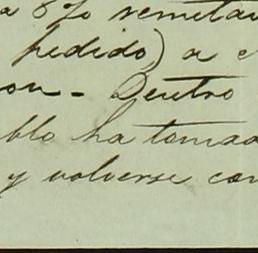 a 8% semeta
pedido) a c
on - Dentro
blo ha tomad
y volverse con